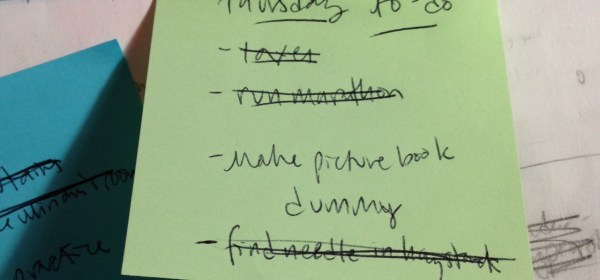 Thursday to-do
- taxes
- run marathon
- Make picture book
dummy
- find needle in haystack
practice